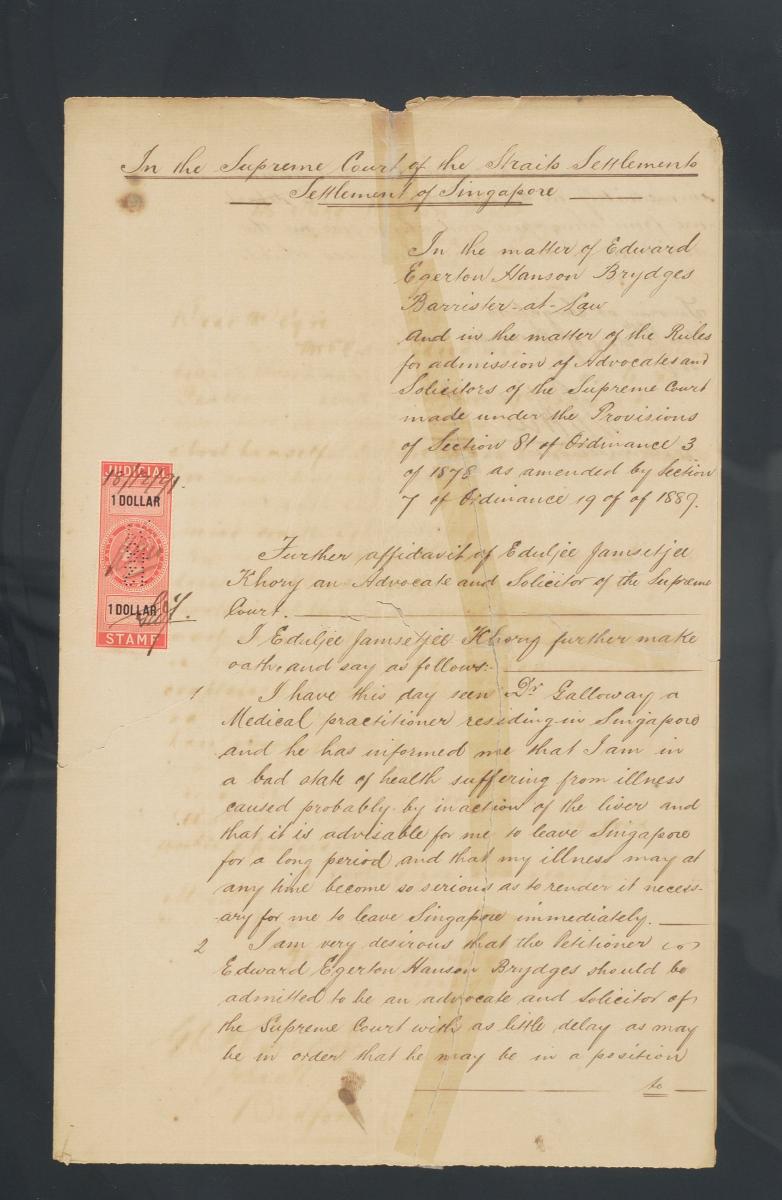 In the Supreme Court of the Straits Settlements
Settlement of Singapore
In the matter of Edward
Egerton Hanson Brydges
Barrister-at-Law
And in the matter of the Rules
for admission of Advocates and
Solicitors of the Supreme Court
made under the Provisions
of Section 81 of Ordinance 3
of 1878 as amended by Section
7 of Ordinance 19 of of 1889.
JUDICIAL
18/12/91.
1 DOLLAR
1 DOLLAR
STAMP
Further affidavit of Eduljee Jamsetjee
Khory an Advocate and Solicitor of the Supreme
Court.
I Eduljee Jamsetjee Khory further make
oath and say as follows:-
1 I have this day seen Dr. Galloway a
Medical practitioner residing in Singapore
and he has informed me that I am in
a bad state of health suffering from illness
caused probably by inaction of the liver and
that it is advisable for me to leave Singapore
for a long period and that my illness may at
any time become so serious as to render it necess-
-ary for me to leave Singapore immediately.
2 I am very desirous that the Petitioner
Edward Egerton Hanson Brydges should be
admitted to be an advocate and Solicitor of
the Supreme Court with as little delay as may
be in order that he may be in a position
to